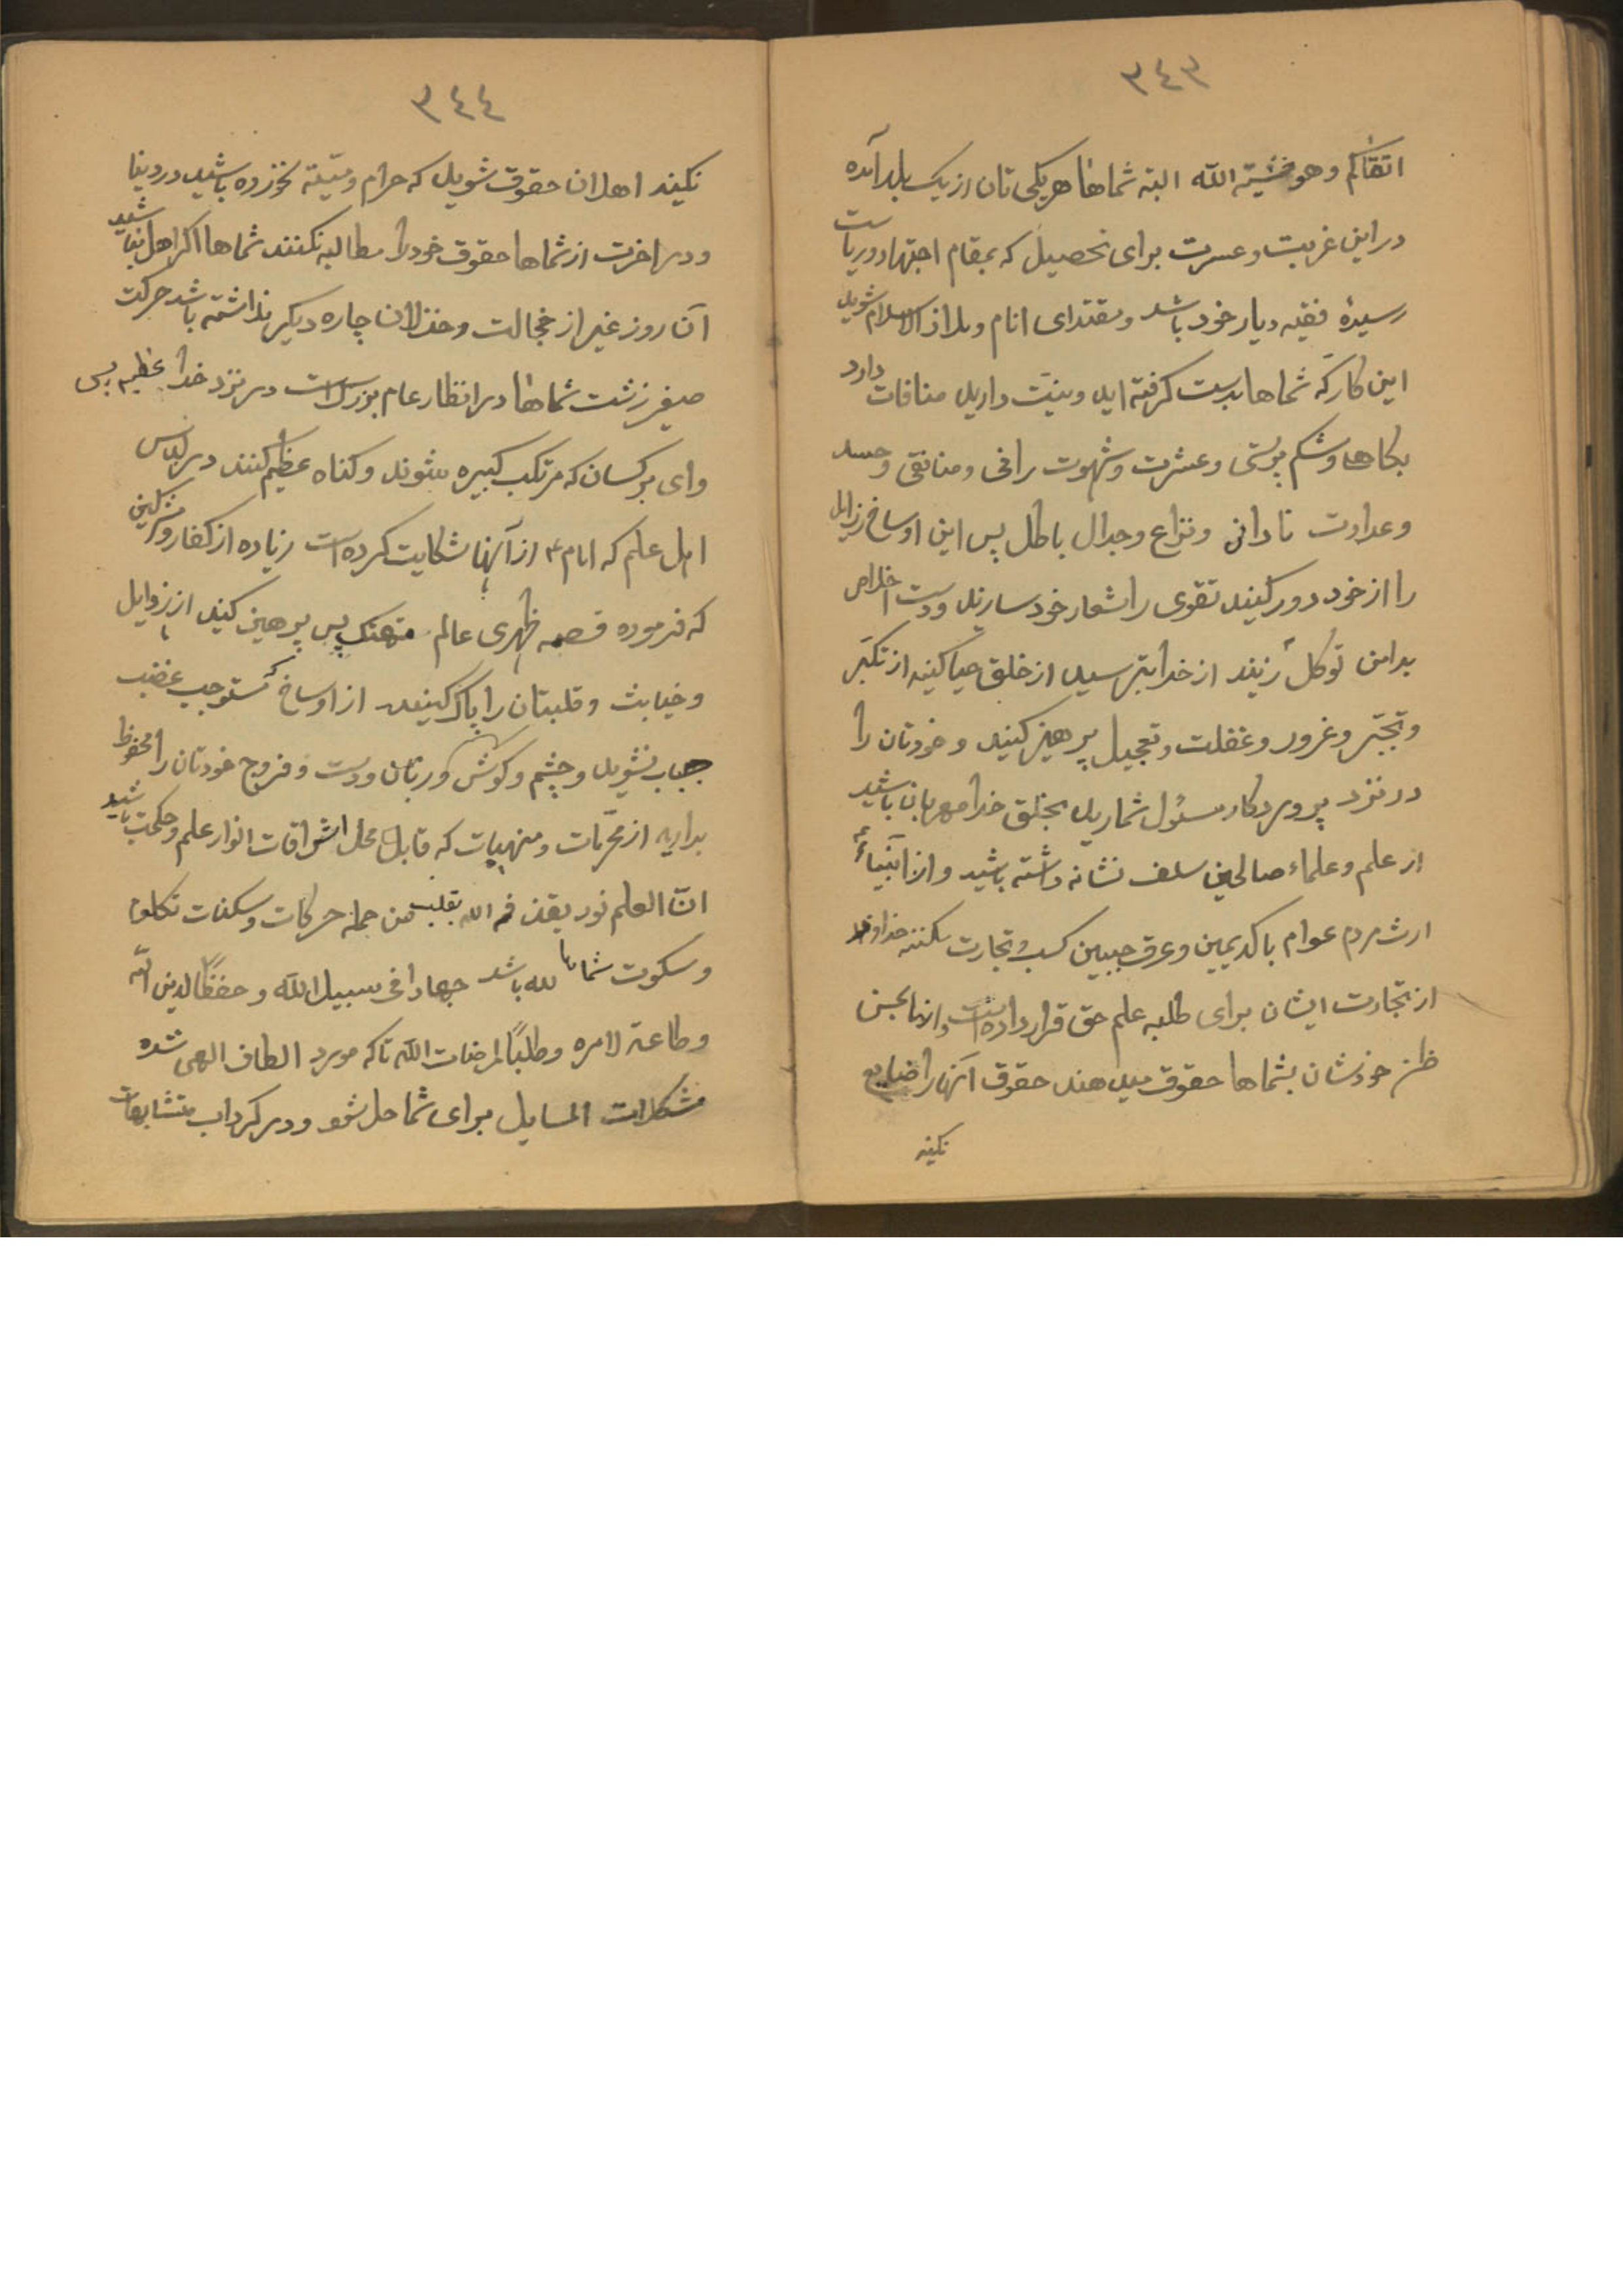 ٣٤٣
اتقاکم وهو خشیته الله البته شماها هریکی تان از یک بلد آمده
در این غربت وعسرت برای تحصیل که بمقام اجتهاد وریاست
رسیدهٔ فقیه دیار خود باشد ومقتدای انام وملاذ الاسلام شوید
این کار که شماها بدست گرفته اید ونیت دارید منافات دارد
بکاهلی وشکم پرستی وعشرت وشهوت رانی ومنافقی وحسد
وعداوت نادانی ونزاع وجدال باطل پس این اوساخ رزایل
را از خود دور کنید تقوی را شعار خود سازید ودست اخلاص
بدامن توکل زنید از خدا بترسید از خلق حیا کنید از تکبّر
وتجبّر وغرور وغفلت وتعجیل پرهیز کنید وخودتان را
در نزد پروردکار مسئول شمارید بخلق خدا مهربان باشید
از علم وعلماء صالحین سلف نشانه داشته باشید واز انبیاء
ارث مردم عوام باکدیمین وعرق جبین کسب وتجارت میکنند خداوند
از تجارت ایشان برای طلبه علم حق قرار داده است واز
ظن خودشان بشماها حقوق میدهند حقوق آنها را ضایع
نکنید
٣٤٤
نکنید اهل ان حقوق شوید که حرام ومیته نخورده باشید در دنیا
ودر اخرت از شماها حقوق خود را مطالبه نکنند شماها اکر اهل نباشید
آن روز غیر از خجالت وخذلان چاره دیکر نداشته باشد حرکت
صغیر زشت شماها در انظار عام بزرک است در نزد خدا عظیم پس
وای بر کسان که مرتکب کبیره شوند وکناه عظیم کنند در لباس
اهل علم که امام ع از آنها شکایت کرده است زیاده از کفار ومشرکین
که فرموده قصمه ظهری عالم متهتک پس پرهیز کنید از رزوایل
وخبایث وقلبتان را پاک کنید از اوساخ مستوجب غضب
جناب نشوید وچشم وکوش وزبان ودست وفروج خودتان را محفوظ
بدارید از محرّمات ومنهیات که قابل محل اشراقات انوار علم وحکمت باشید
انّ العلم نور یقذفه الله بقلب من جمله حرکات وسکنات تکلم
وسکوت شماها لله باشد جهادا فی سبیل الله وحفظًا لدین الله
وطاعة لامره وطلبًا لمرضات الله تاکه مورد الطاف الهی شده
مشکلات المسایل برای شما حل شود ودر کرداب متشابهات